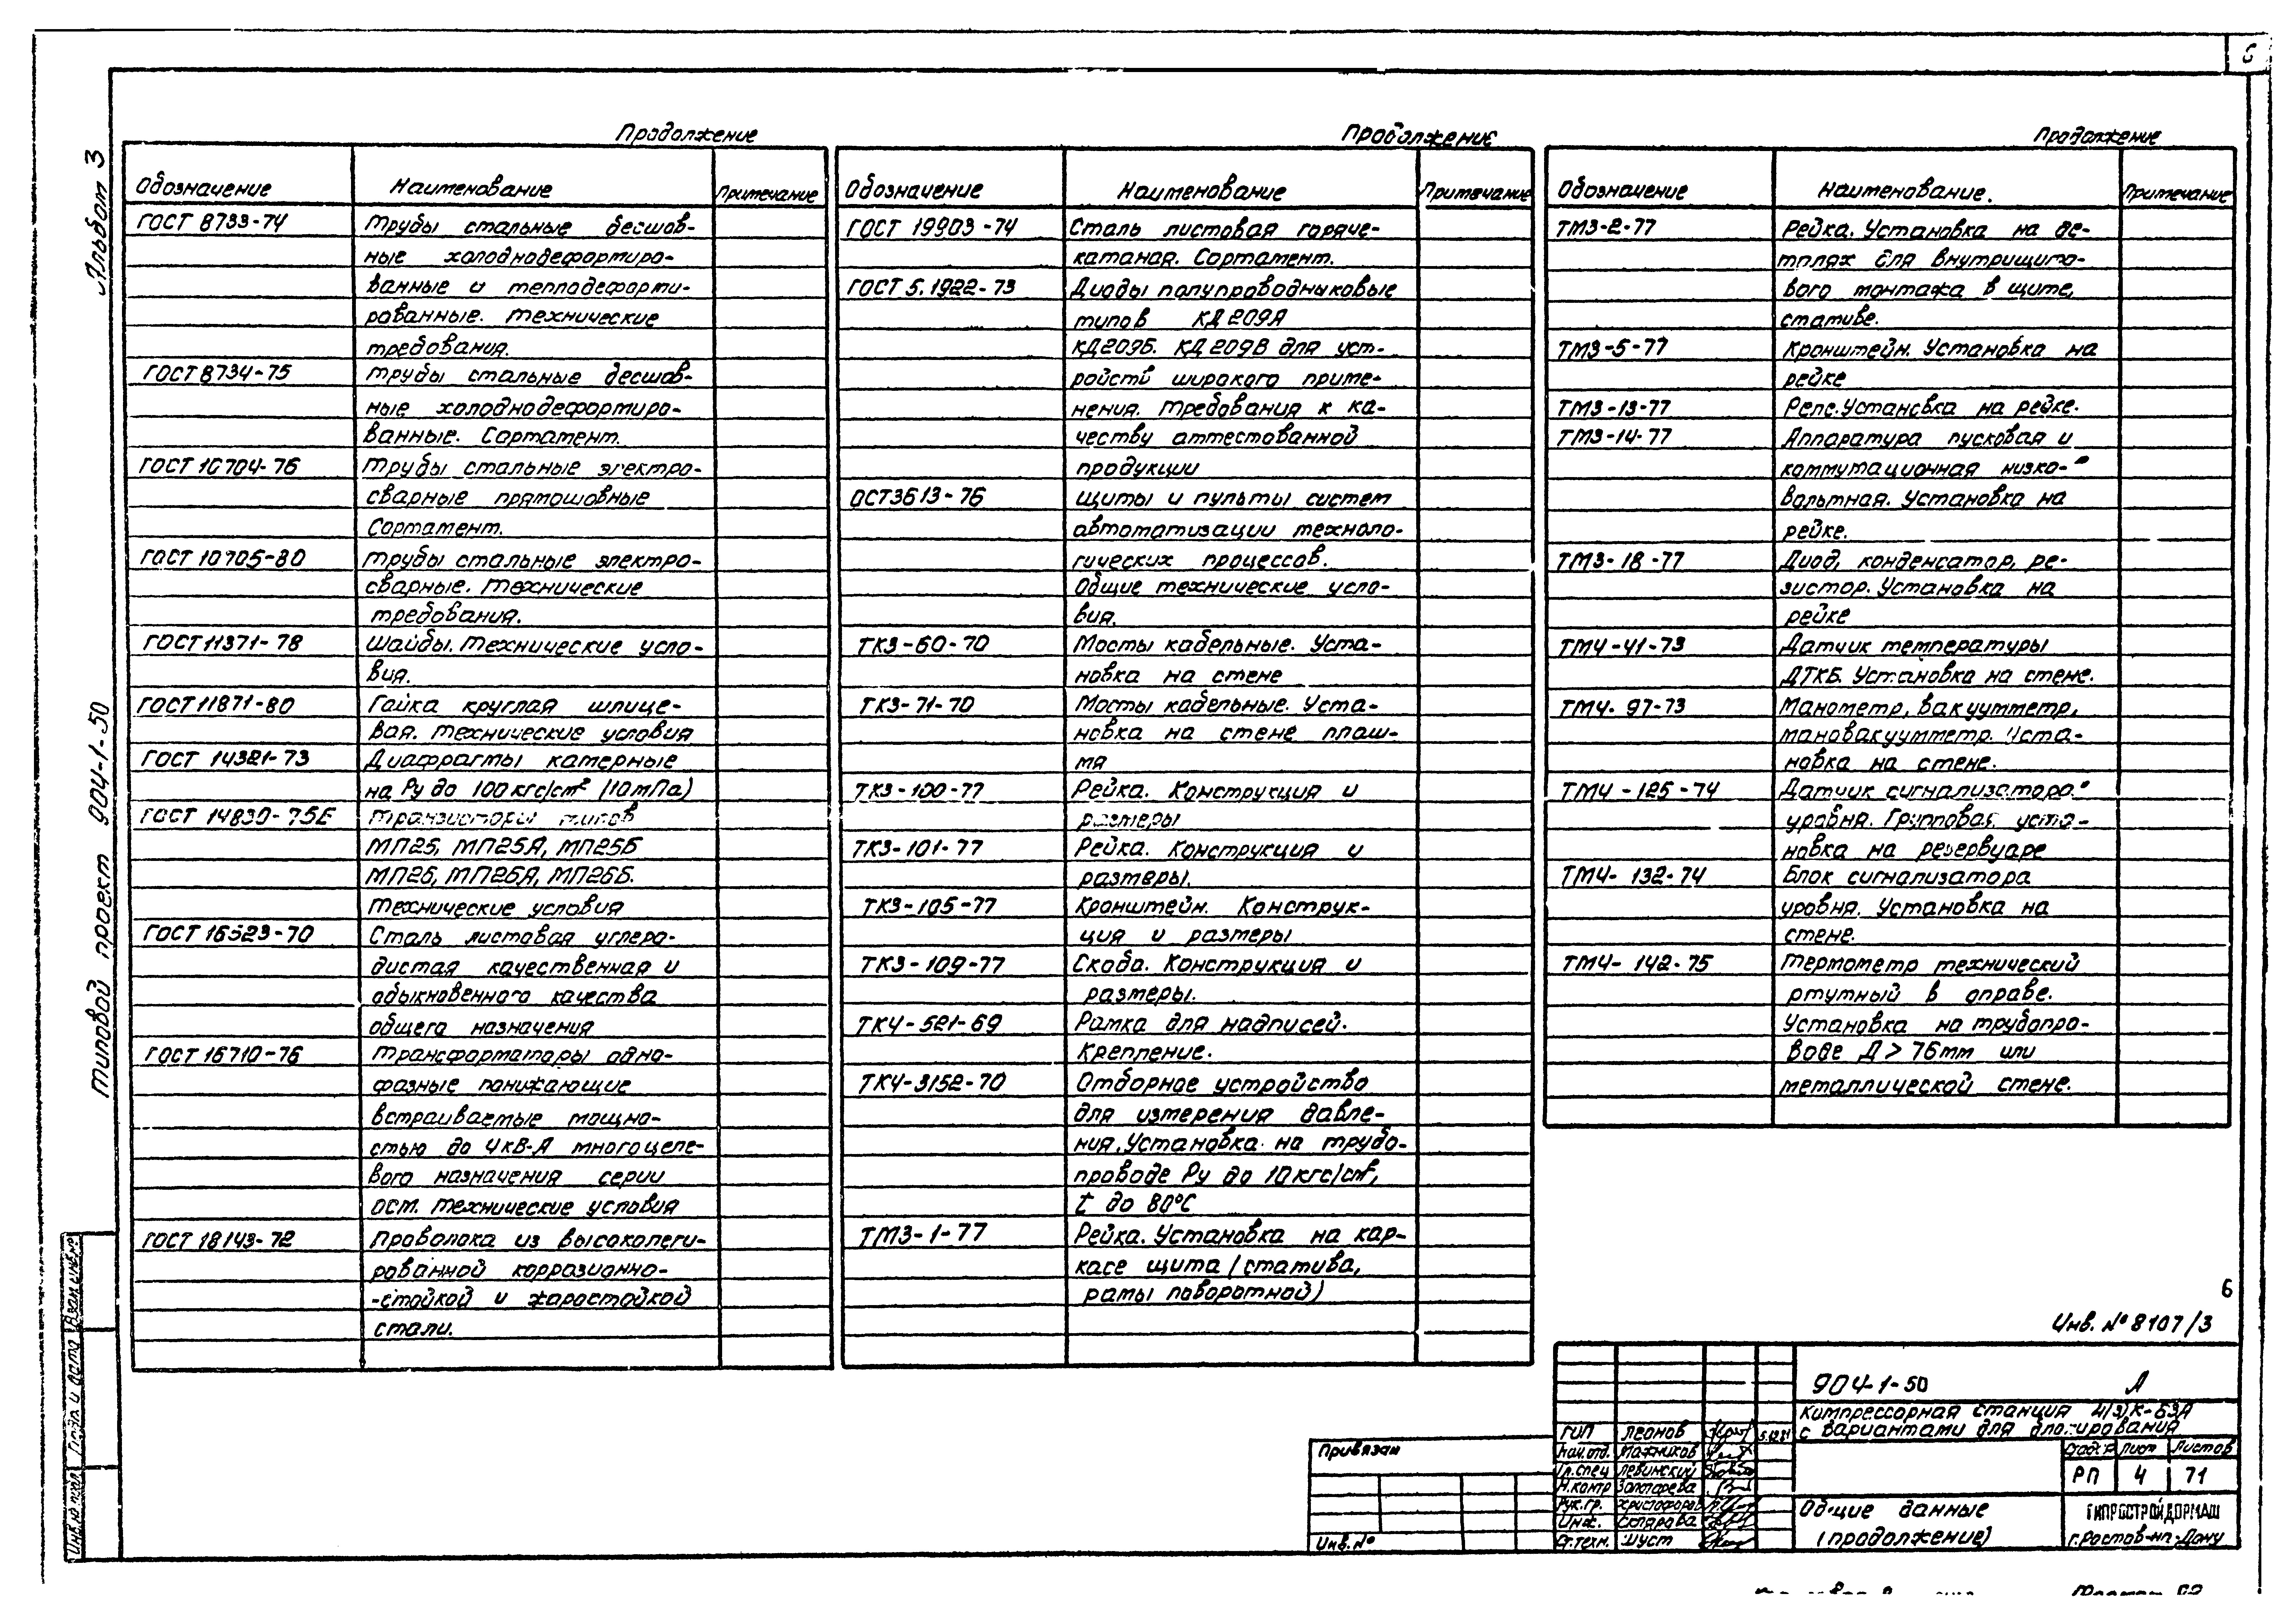 6
Альбом 3
Типовой проект 904-1-50
Продолжение
Обозначение Наименование Примечание
ГОСТ 8733-74 Трубы стальные бесшов-
ные холоднодеформиро-
ванные и теплодеформи-
рованные. Технические
требования.
ГОСТ 8734-75 Трубы стальные бесшов-
ные холоднодеформиро-
ванные. Сортамент.
ГОСТ 10704-76 Трубы стальные электро-
сварные прямошовные
Сортамент.
ГОСТ 10705-80 Трубы стальные электро-
сварные. Технические
требования.
ГОСТ 11371-78 Шайбы. Технические усло-
вия.
ГОСТ 11871-80 Гайка круглая шлице-
вая. Технические условия
ГОСТ 14321-73 Диафрагмы камерные
на Ру до 100 кгс/см² (10мПа)
ГОСТ 14830-75Е Транзисторы типов
МП25, МП25А, МП25Б
МП26, МП26А, МП26Б.
Технические условия
ГОСТ 16523-70 Сталь листовая углеро-
дистая качественная и
обыкновенного качества
общего назначения
ГОСТ 16710-76 Трансформаторы одно-
фазные понижающие
встраиваемые мощно-
стью до 4кВ-А многоцеле-
вого назначения серии
ОСМ. Технические условия
ГОСТ 18143-72 Проволока из высоколеги-
рованной коррозионно-
-стойкой и жаростойкой
стали.
Продолжение
Обозначение Наименование Примечание
ГОСТ 19903-74 Сталь листовая горяче-
катаная. Сортамент.
ГОСТ 5.1922-73 Диоды полупроводниковые
типов КД209А
КД209Б. КД209В для уст-
ройств широкого приме-
нения. Требования к ка-
честву аттестованной
продукции
ОСТ3613-76 Щиты и пульты систем
автоматизации техноло-
гических процессов.
Общие технические усло-
вия.
ТК3-60-70 Мосты кабельные. Уста-
новка на стене
ТК3-71-70 Мосты кабельные. Уста-
новка на стене плаш-
мя
ТК3-100-77 Рейка. Конструкция и
размеры
ТК3-101-77 Рейка. Конструкция и
размеры.
ТК3-105-77 Кронштейн. Конструк-
ция и размеры
ТК3-109-77 Скоба. Конструкция и
размеры.
ТК4-521-69 Рамка для надписей.
Крепление.
ТК4-3152-70 Отборное устройство
для измерения давле-
ния. Установка на трубо-
проводе Ру до 10кгс/см²,
t до 80°С
ТМ3-1-77 Рейка. Установка на кар-
касе щита (статива,
рамы поворотной)
Продолжение
Обозначение Наименование. Примечание
ТМ3-2-77 Рейка. Установка на де-
талях для внутрищито-
вого монтажа в щите,
стативе.
ТМ3-5-77 Кронштейн. Установка на
рейке
ТМ3-13-77 Реле. Установка на рейке.
ТМ3-14-77 Аппаратура пусковая и
коммутационная низко-
вольтная. Установка на
рейке.
ТМ3-18-77 Диод, конденсатор, ре-
зистор. Установка на
рейке
ТМ4-41-73 Датчик температуры
ДТКБ. Установка на стене.
ТМ4-97-73 Манометр, вакуумметр,
мановакуумметр. Уста-
новка на стене.
ТМ4-125-74 Датчик сигнализатора
уровня. Групповая уста-
новка на резервуаре
ТМ4-132-74 Блок сигнализатора
уровня. Установка на
стене.
ТМ4-142-75 Термометр технический
ртутный в оправе.
Установка на трубопро-
воде Д > 76мм или
металлической стене.
6
Инв. № 8107/3
904-1-50 А
Компрессорная станция 4(3)К-63А
с вариантами для блокирования
ГИП Леонов
Нач.отд. Мажников
Гл.спец Левинский
Н.контр Золотарева
Рук.гр. Христофоров
Инж. Склярова
Ст.техн. Шуст
Стадия Лист Листов
РП 4 71
Общие данные
(продолжение)
ГИПРОСТРОЙДОРМАШ
г.Ростов-на-Дону
Привязан
Инв.№
Взам инв.№
Подп и дата
Инв.№ подл.